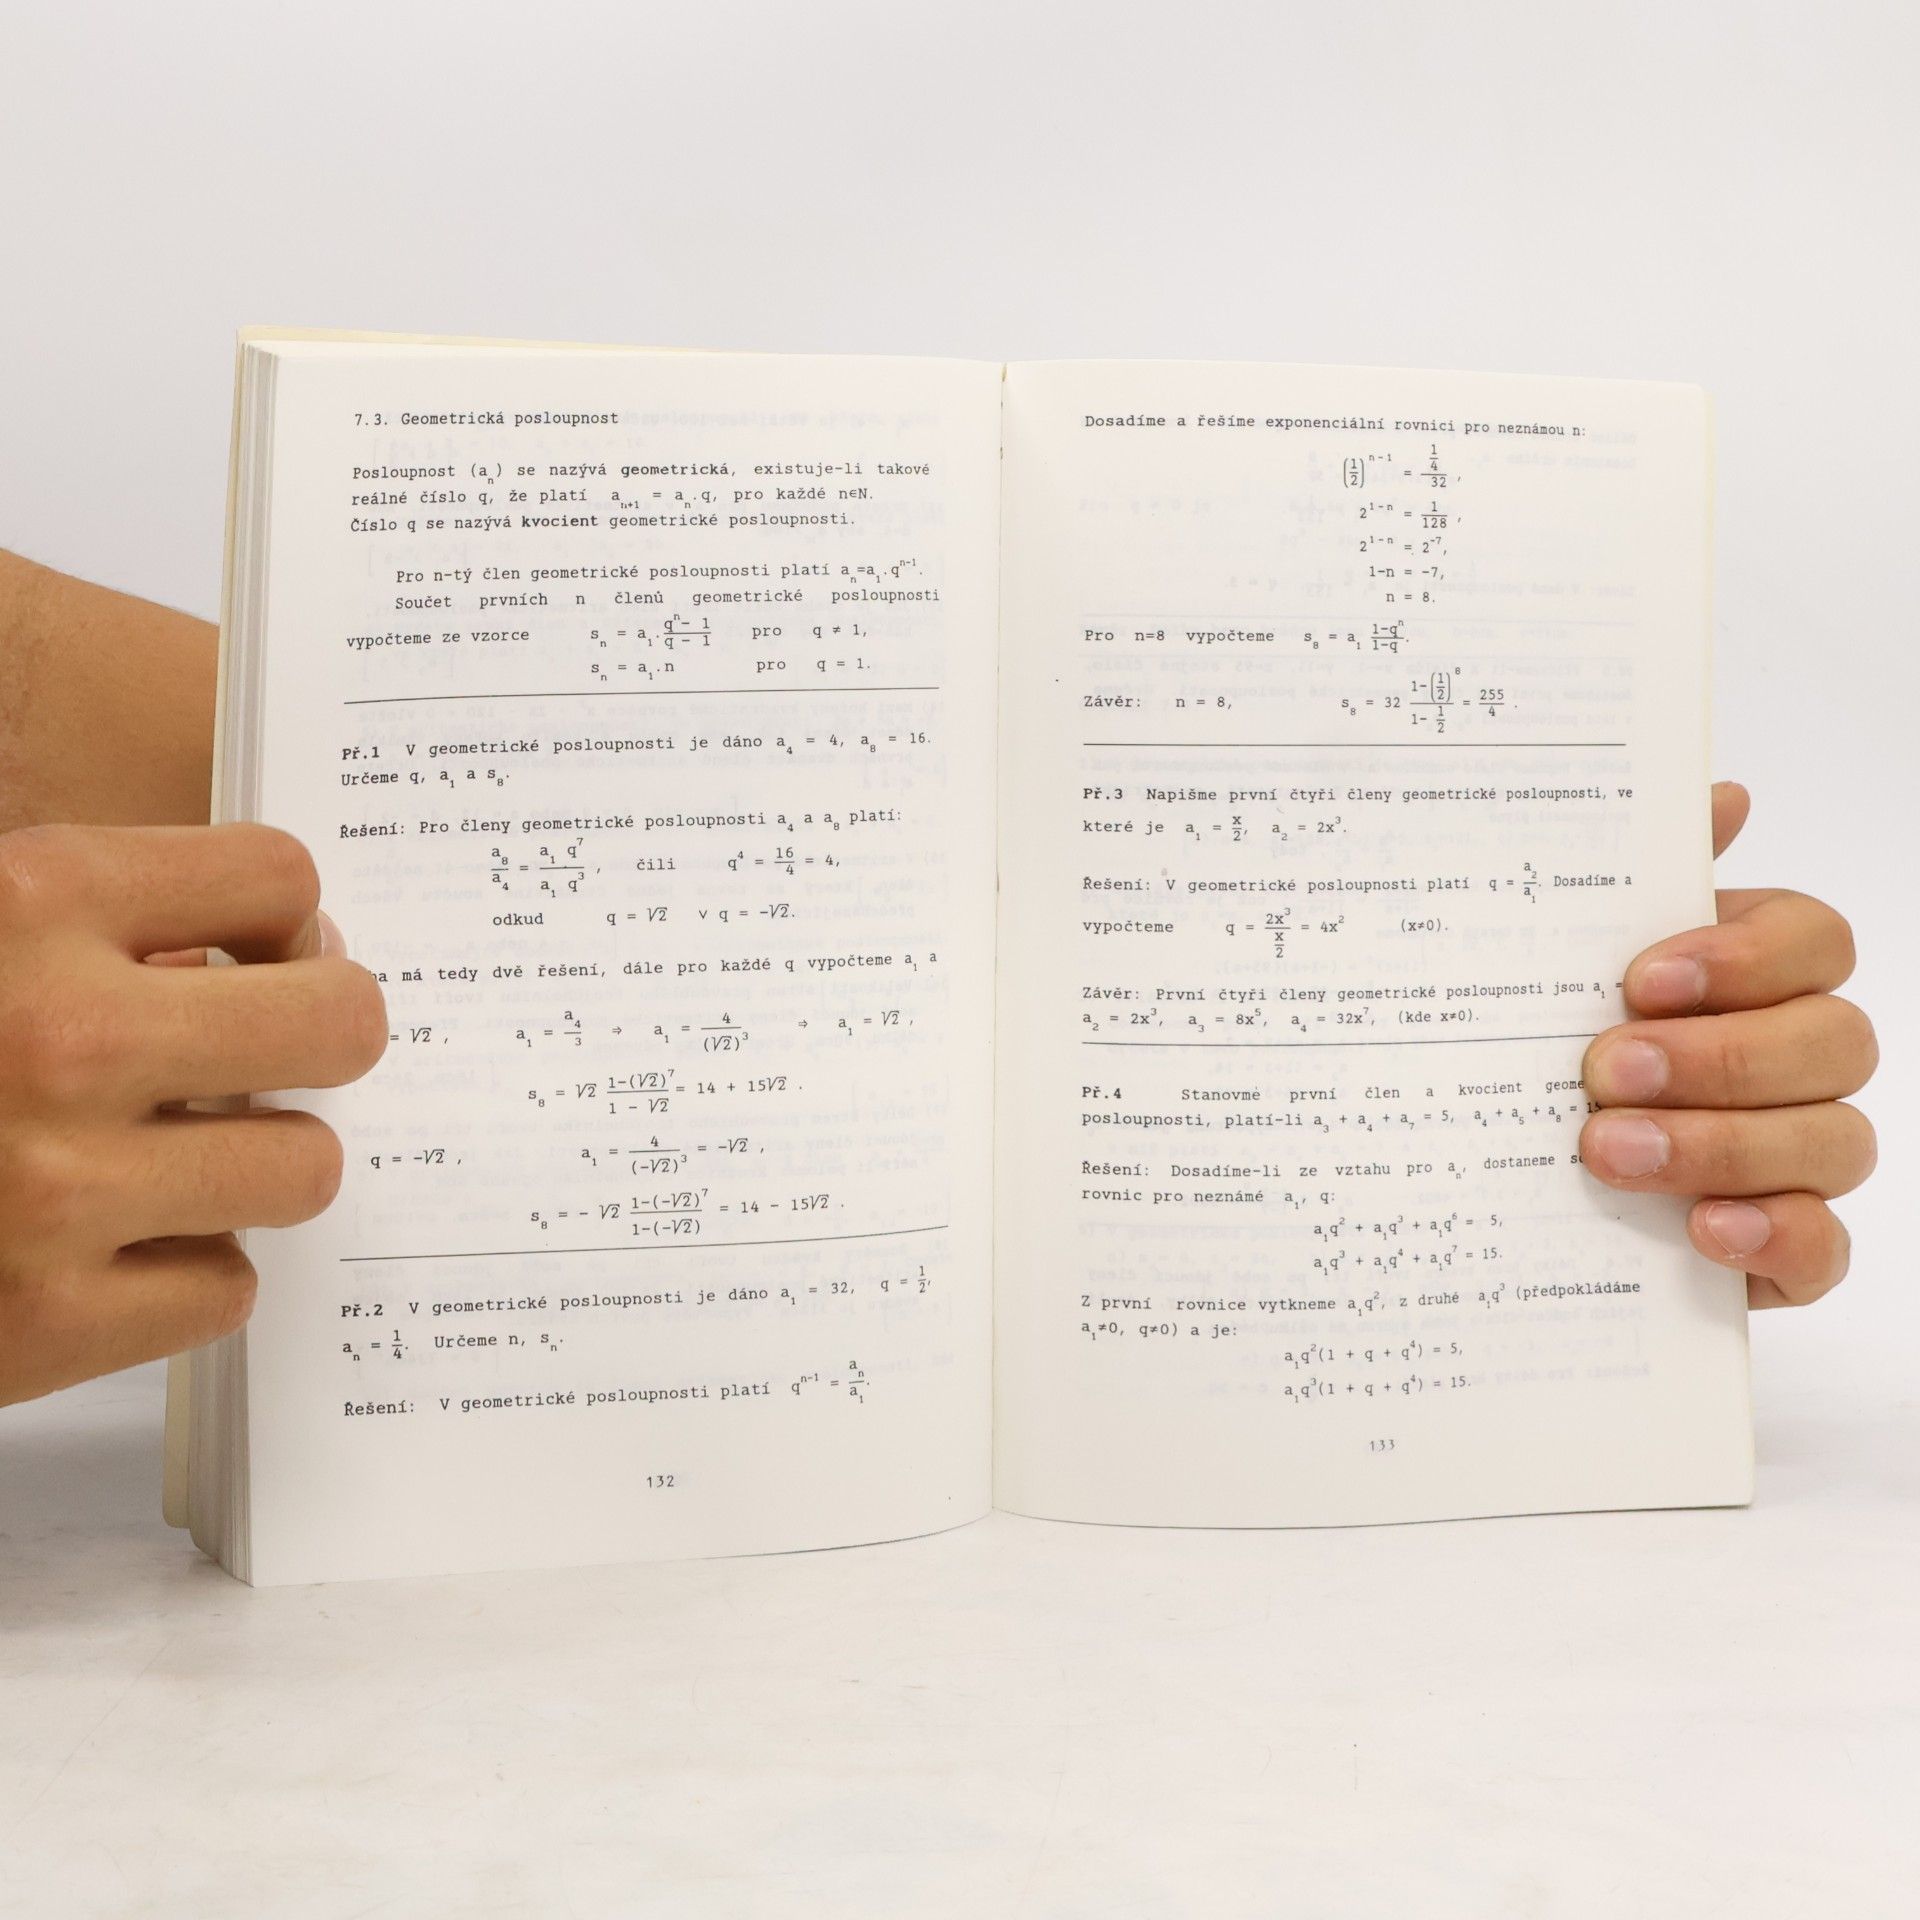 7.3. Geometrická posloupnost
Posloupnost (a_n) se nazývá geometrická, existuje-li takové
reálné číslo q, že platí a_{n+1} = a_n.q, pro každé n∈N.
Číslo q se nazývá kvocient geometrické posloupnosti.
Pro n-tý člen geometrické posloupnosti platí a_n=a_1.q^{n-1}.
Součet prvních n členů geometrické posloupnosti
vypočteme ze vzorce s_n = a_1.(q^n - 1)/(q - 1) pro q ≠ 1,
s_n = a_1.n pro q = 1.
Př.1 V geometrické posloupnosti je dáno a_4 = 4, a_8 = 16.
Určeme q, a_1 a s_8.
Řešení: Pro členy geometrické posloupnosti a_4 a a_8 platí:
a_8/a_4 = a_1 q^7/a_1 q^3, čili q^4 = 16/4 = 4,
odkud q = √2 v q = -√2.
má tedy dvě řešení, dále pro každé q vypočteme a_1 a
= √2 , a_1 = a_4/3 ⇒ a_1 = 4/(√2)^3 ⇒ a_1 = √2 ,
s_8 = √2 (1-(√2)^7)/(1 - √2) = 14 + 15√2 .
q = -√2 , a_1 = 4/(-√2)^3 = -√2 ,
s_8 = - √2 (1-(-√2)^7)/(1-(-√2)) = 14 - 15√2 .
Př.2 V geometrické posloupnosti je dáno a_1 = 32, q = 1/2,
a_n = 1/4. Určeme n, s_n.
Řešení: V geometrické posloupnosti platí q^{n-1} = a_n/a_1.
132
Dosadíme a řešíme exponenciální rovnici pro neznámou n:
(1/2)^{n-1} = (1/4)/32 ,
2^{1-n} = 1/128 ,
2^{1-n} = 2^{-7},
1-n = -7,
n = 8.
Pro n=8 vypočteme s_8 = a_1 (1-q^n)/(1-q).
Závěr: n = 8, s_8 = 32 (1-(1/2)^8)/(1- 1/2) = 255/4 .
Př.3 Napišme první čtyři členy geometrické posloupnosti, ve
které je a_1 = x/2, a_2 = 2x^3.
Řešení: V geometrické posloupnosti platí q = a_2/a_1. Dosadíme a
vypočteme q = 2x^3/(x/2) = 4x^2 (x≠0).
Závěr: První čtyři členy geometrické posloupnosti jsou a_1 =
a_2 = 2x^3, a_3 = 8x^5, a_4 = 32x^7, (kde x≠0).
Př.4 Stanovme první člen a kvocient
posloupnosti, platí-li a_3 + a_4 + a_7 = 5, a_4 + a_5 + a_8 = 15
Řešení: Dosadíme-li ze vztahu pro a_n, dostaneme
rovnic pro neznámé a_1, q:
a_1q^2 + a_1q^3 + a_1q^6 = 5,
a_1q^3 + a_1q^4 + a_1q^7 = 15.
Z první rovnice vytkneme a_1q^2, z druhé a_1q^3 (předpokládáme
a_1≠0, q≠0) a je:
a_1q^2(1 + q + q^4) = 5,
a_1q^3(1 + q + q^4) = 15.
133